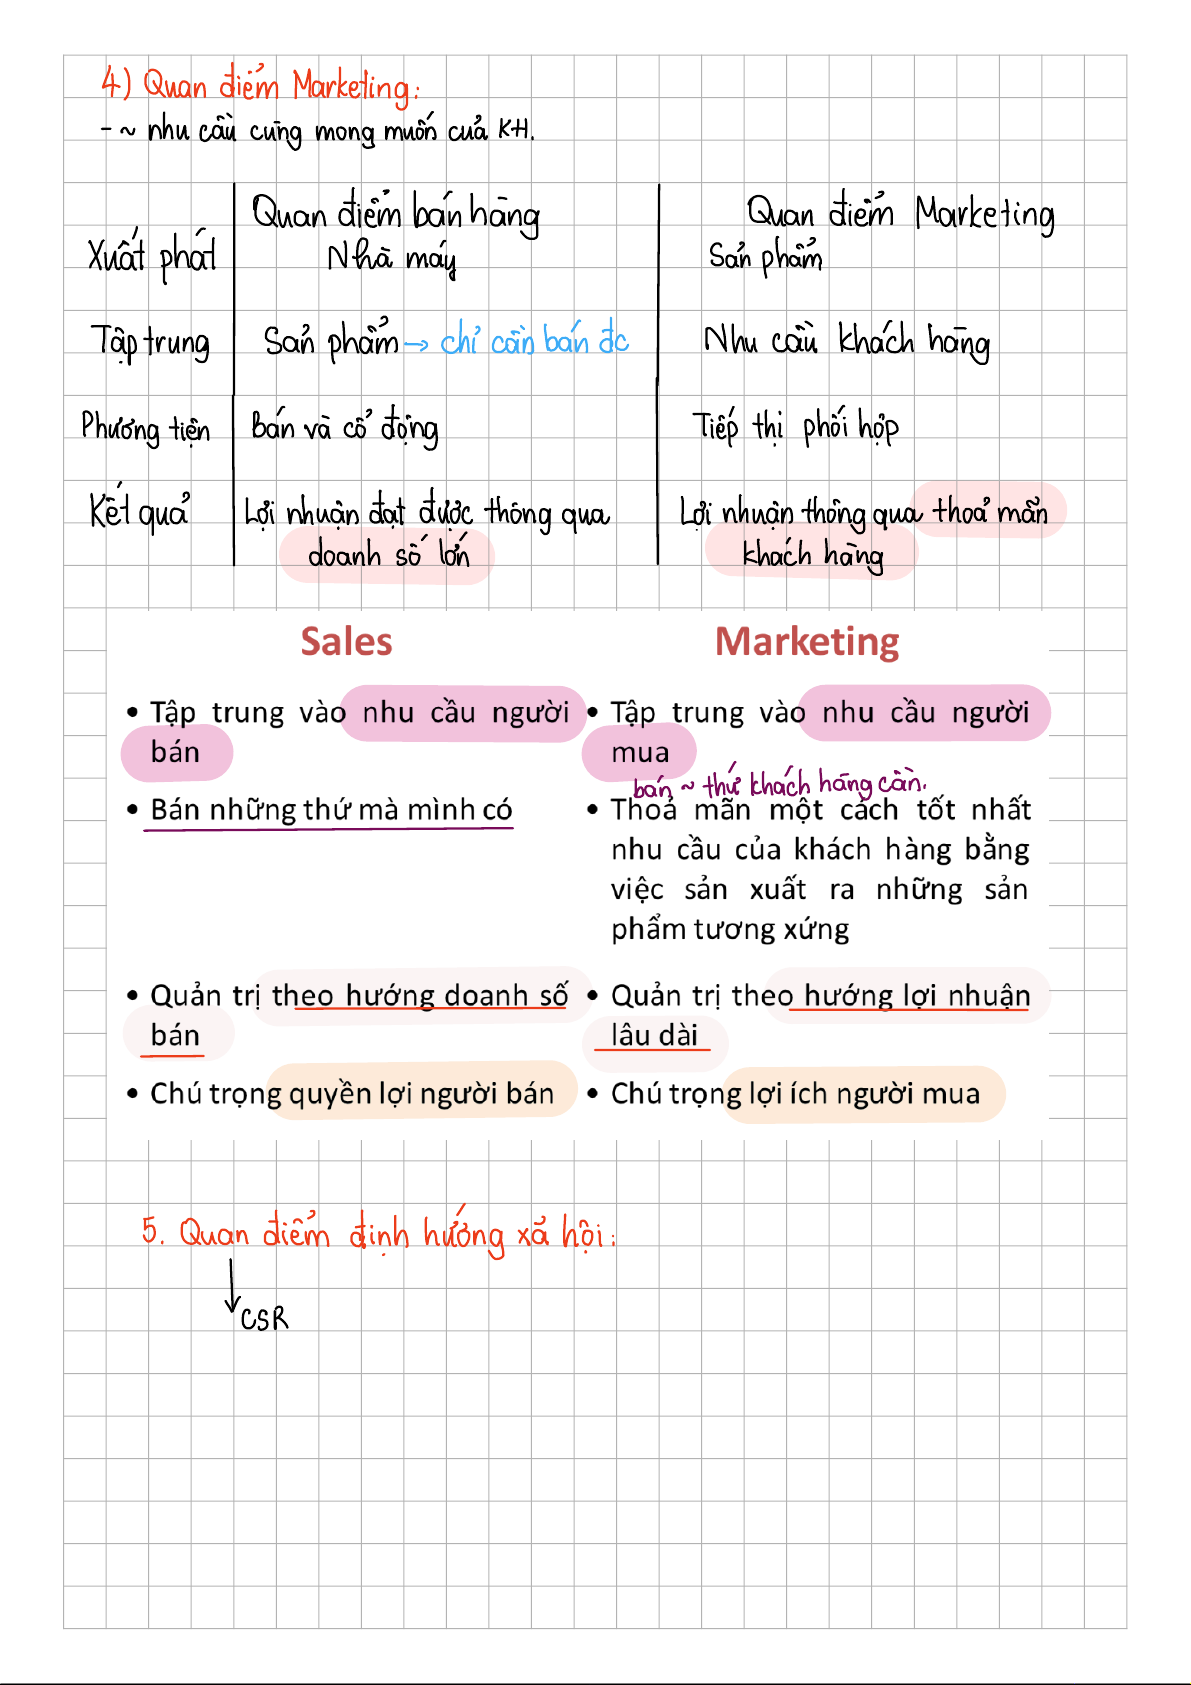 4) Quan điểm Marketing:
- ~ nhu cầu cùng mong muốn của KH.
Quan điểm bán hàng Quan điểm Marketing
Xuất phát Nhà máy Sản phẩm
Tập trung Sản phẩm → chỉ cần bán đc Nhu cầu khách hàng
Phương tiện Bán và cổ động Tiếp thị phối hợp
Kết quả Lợi nhuận đạt được thông qua Lợi nhuận thông qua thoả mãn
doanh số lớn khách hàng
Sales Marketing
• Tập trung vào nhu cầu người • Tập trung vào nhu cầu người
bán mua
bán ~ thứ khách hàng cần.
• Bán những thứ mà mình có • Thoả mãn một cách tốt nhất
nhu cầu của khách hàng bằng
việc sản xuất ra những sản
phẩm tương xứng
• Quản trị theo hướng doanh số • Quản trị theo hướng lợi nhuận
bán lâu dài
• Chú trọng quyền lợi người bán • Chú trọng lợi ích người mua
5. Quan điểm định hướng xã hội:
↓
CSR